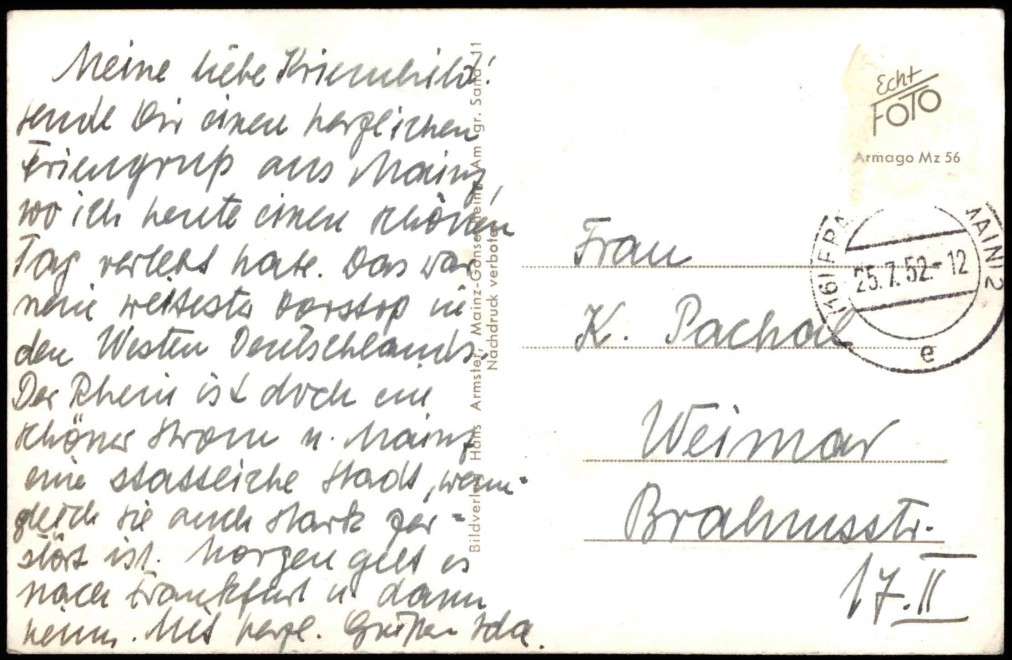 Meine liebe Kriemhild!
sende Dir einen herzlichen
Feriengruß aus Mainz,
wo ich heute einen schönen
Tag verlebt habe. Das war
mein weitester Vorstoß in
den Westen Deutschlands.
Der Rhein ist doch ein
schöner Strom u. Mainz
eine stattliche Stadt, wenn-
gleich sie auch stark zer=
stört ist. Morgen geht es
nach Frankfurt u. dann
heim. Mit herzl. Grüßen Ida.
Bildverlag Hans Armster, Mainz-Gonsenheim, Am gr. Sand 11
Nachdruck verboten
Echt
FOTO
Armago Mz 56
(16) FRA MAIN) 2
25.7.52-12
e
Frau
K. Pachal
Weimar
Brahmsstr.
17.II